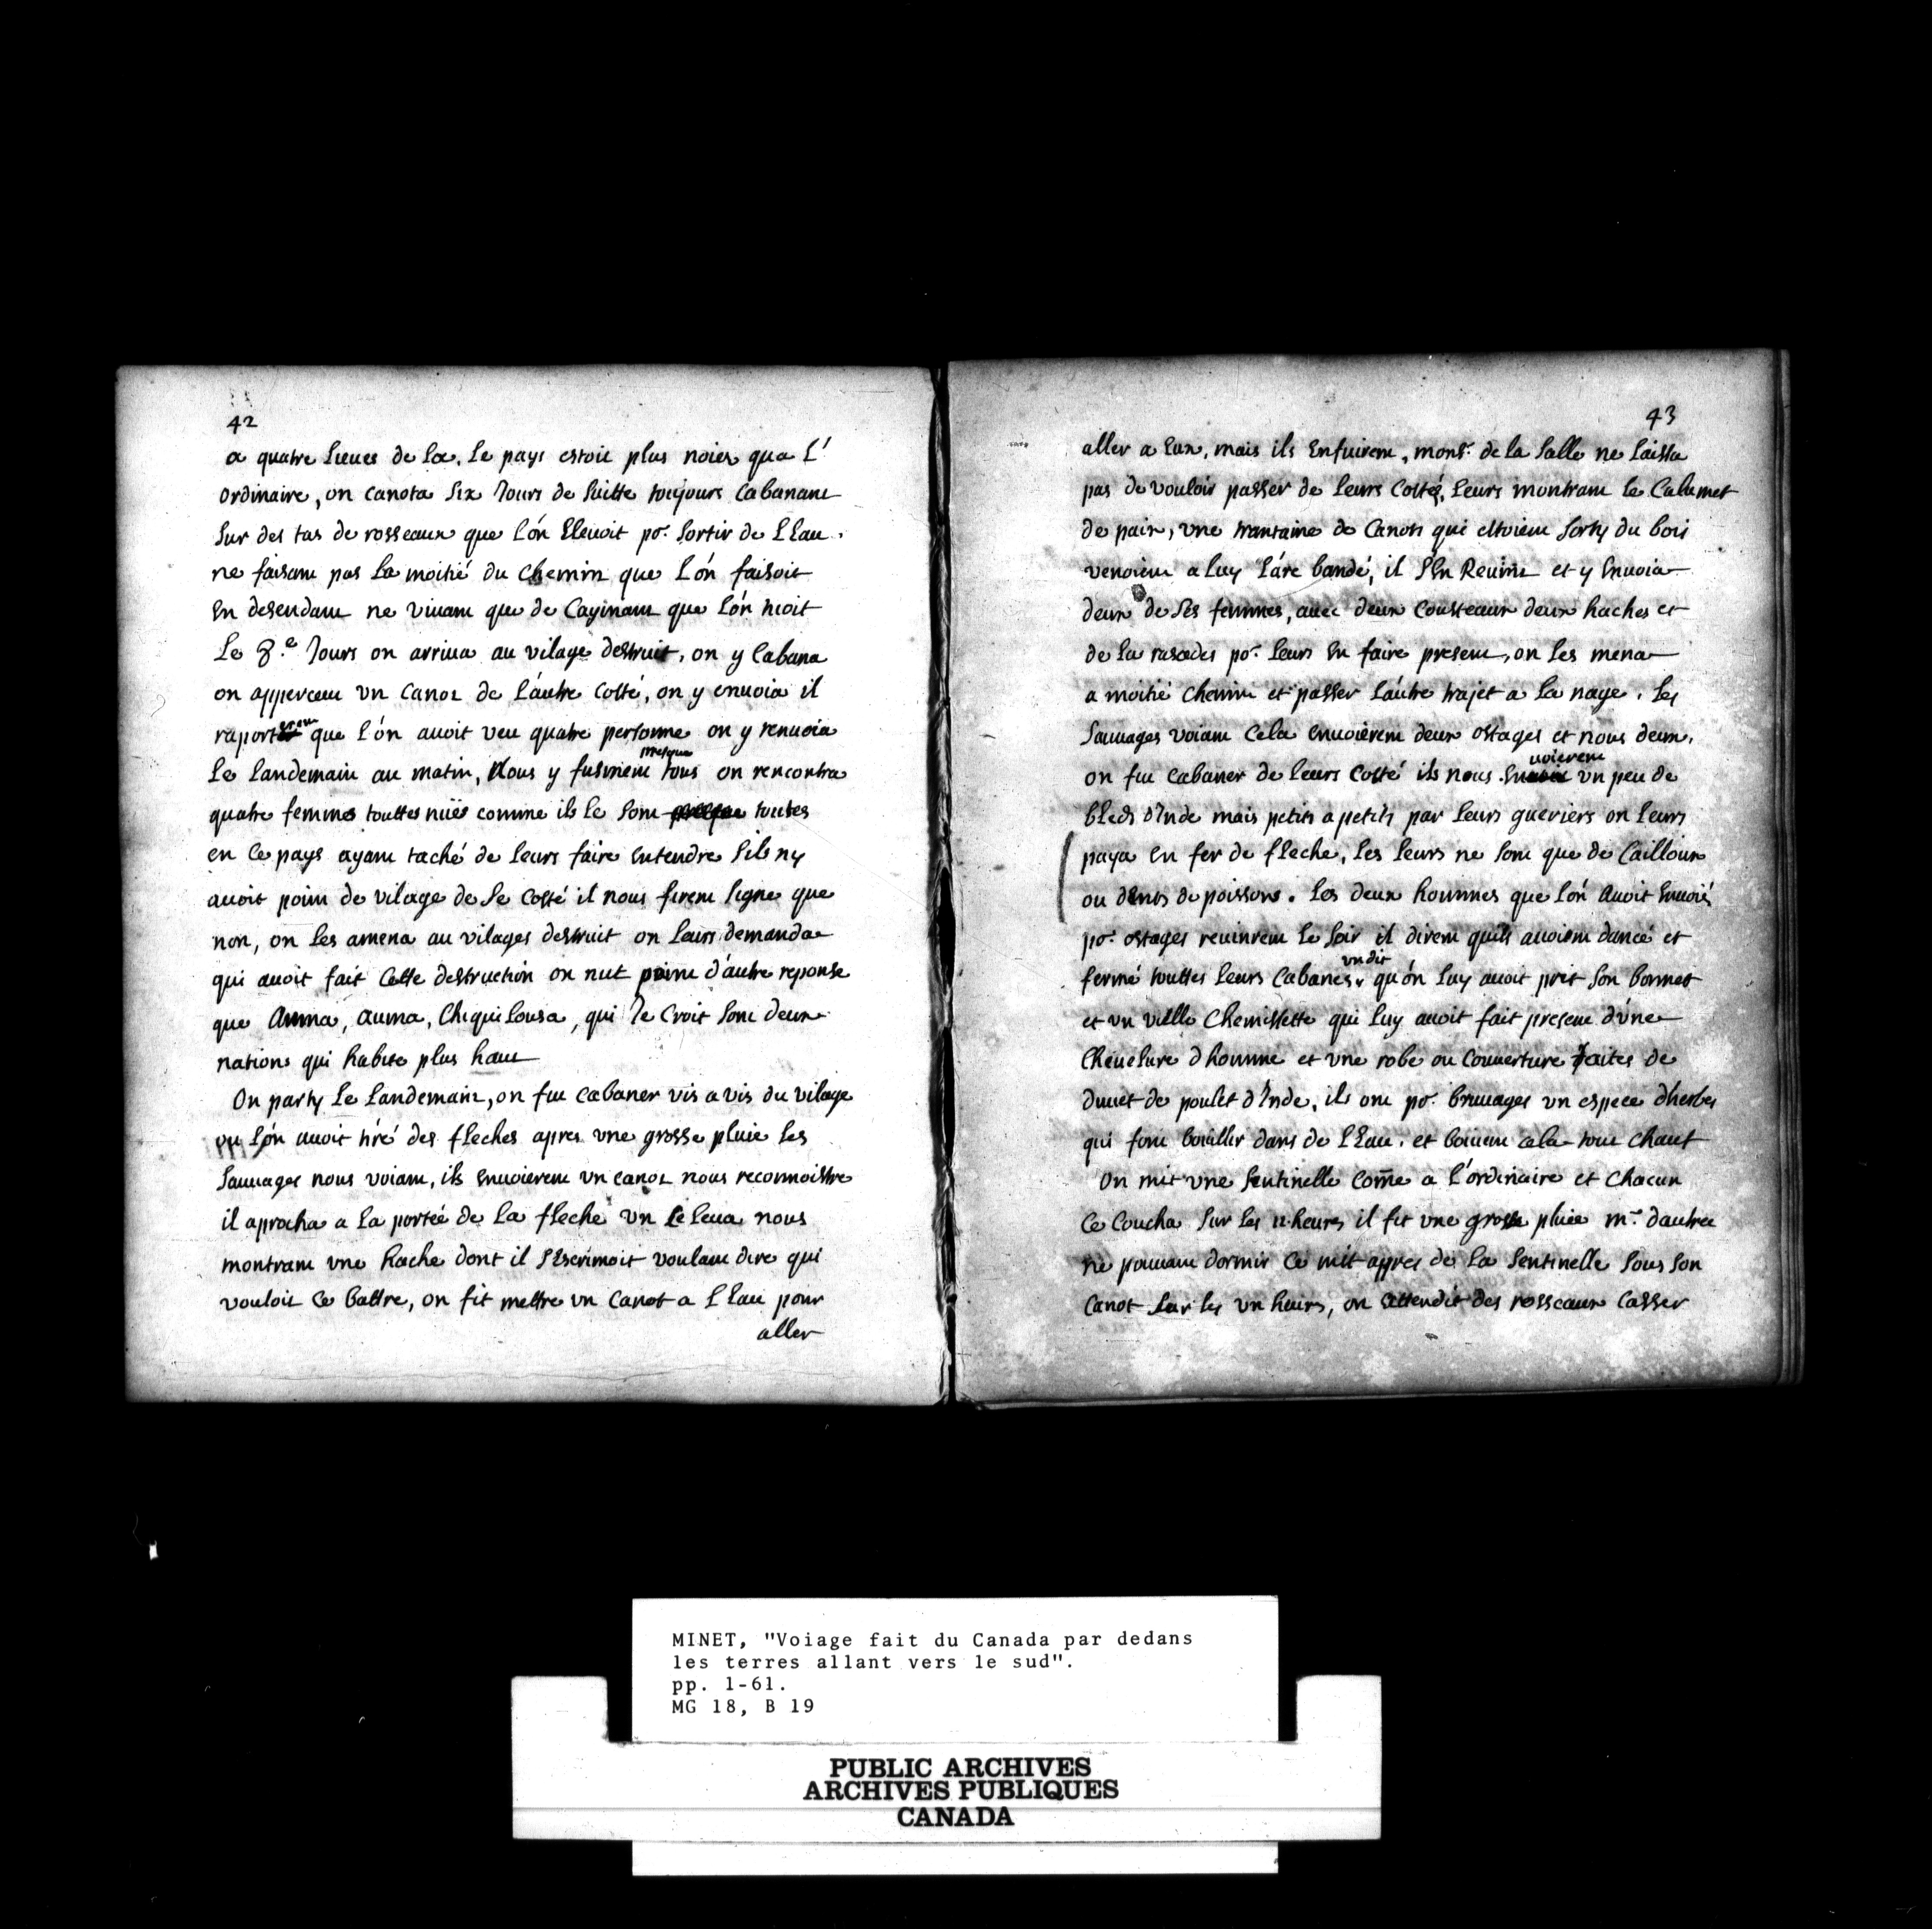 42
a quatre lieues de la. le pays estoit plus noiés qua l'
ordinaire, on canota six Jours de suitte toujours Cabanant
sur des tas de rosseaux que l'on Elevoit po.r sortir de l Eau.
ne faisant pas la moitié du chemin que l'on faisoit
En desendant ne vivant que de Cayinant que l'on tuoit
Le 8.e Jours on arriva au vilage destruit, on y Cabana
on apperceut vn canot de l'autre Costé, on y envoia il
raporterent que l'on avoit veu quatre personne on y renvoia
le landemain au matin, Nous y fusment presque tous on rencontra
quatre femmes touttes nüës comme ils le sont presque toutes
en ce pays ayant taché de leurs faire Entendre sils ny
avoit point de vilage de se Costé il nous firent signe que
non, on les amena au vilages destruit on leurs demanda
qui avoit fait Cette destruction on nut point d'autre reponse
que Auma, auma, Chiquilousa, qui Je Croit sont deux
nations qui habite plus haut
On party le landemain, on fut cabaner vis a vis du vilage
ou l'on avoit tiré des fleches apres vne grosse pluie les
sauvages nous voiant, ils Envoierent vn canot nous reconnoistre
il aprocha a la porteé de la fleche vn se leva nous
montrant vne hache dont il s'Escrimoit voulant dire qui
vouloit ce battre, on fit mettre vn canot a l Eau pour
aller
43
aller a Eux, mais ils Enfuirent, mons.r de la salle ne laissa
pas de vouloir passer de leurs Costés, leurs montrant le Calumet
de paix, vne trantaine de Canots qui estoient sorty du bois
venoient a luy l'arc bandé, il s'En Revint et y Envoia
deux de ses femmes, avec deux Cousteaux deux haches et
de la rasades po.r leurs En faire present, on les mena
a moitié chemin et passer l'autre trajet a la nage. les
sauvages voiant Cela Envoièrent deux ostages et nous deux.
on fut cabaner de leurs Costé ils nous Envoierent vn peu de
bleds d'Inde mais petits a petits par leurs gueriers on leurs
paya En fer de fleche, les leurs ne sont que de Cailloux
ou dents de poissons. les deux hommes que l'on avoit Envoiés
po.r ostages revinrent le soir il dirent quils avoient dancé et
fermé touttes leurs Cabanes, vn dit qu'on luy avoit prit son bonnet
et vn vielle Chemissette qui luy avoit fait present d'vne
Chevelure d homme et vne robe ou Couverture faites de
duvet de poulet d'Inde, ils ont po.r bruvages vn espece dherbes
qui font boüillir dans de l Eau. et boivent cela tout chaut
On mit vne sentinelle Com̃e a l'ordinaire et chacun
ce Coucha sur les 12 heures il fit vne grosse pluie m.r dautree
ne pouvant dormir ce mit aprés de la sentinelle sous son
canot sur les vn heurs, on attendit des rosseaux Casser
MINET, "Voiage fait du Canada par dedans
les terres allant vers le sud".
pp. 1-61.
MG 18, B 19
PUBLIC ARCHIVES
ARCHIVES PUBLIQUES
CANADA